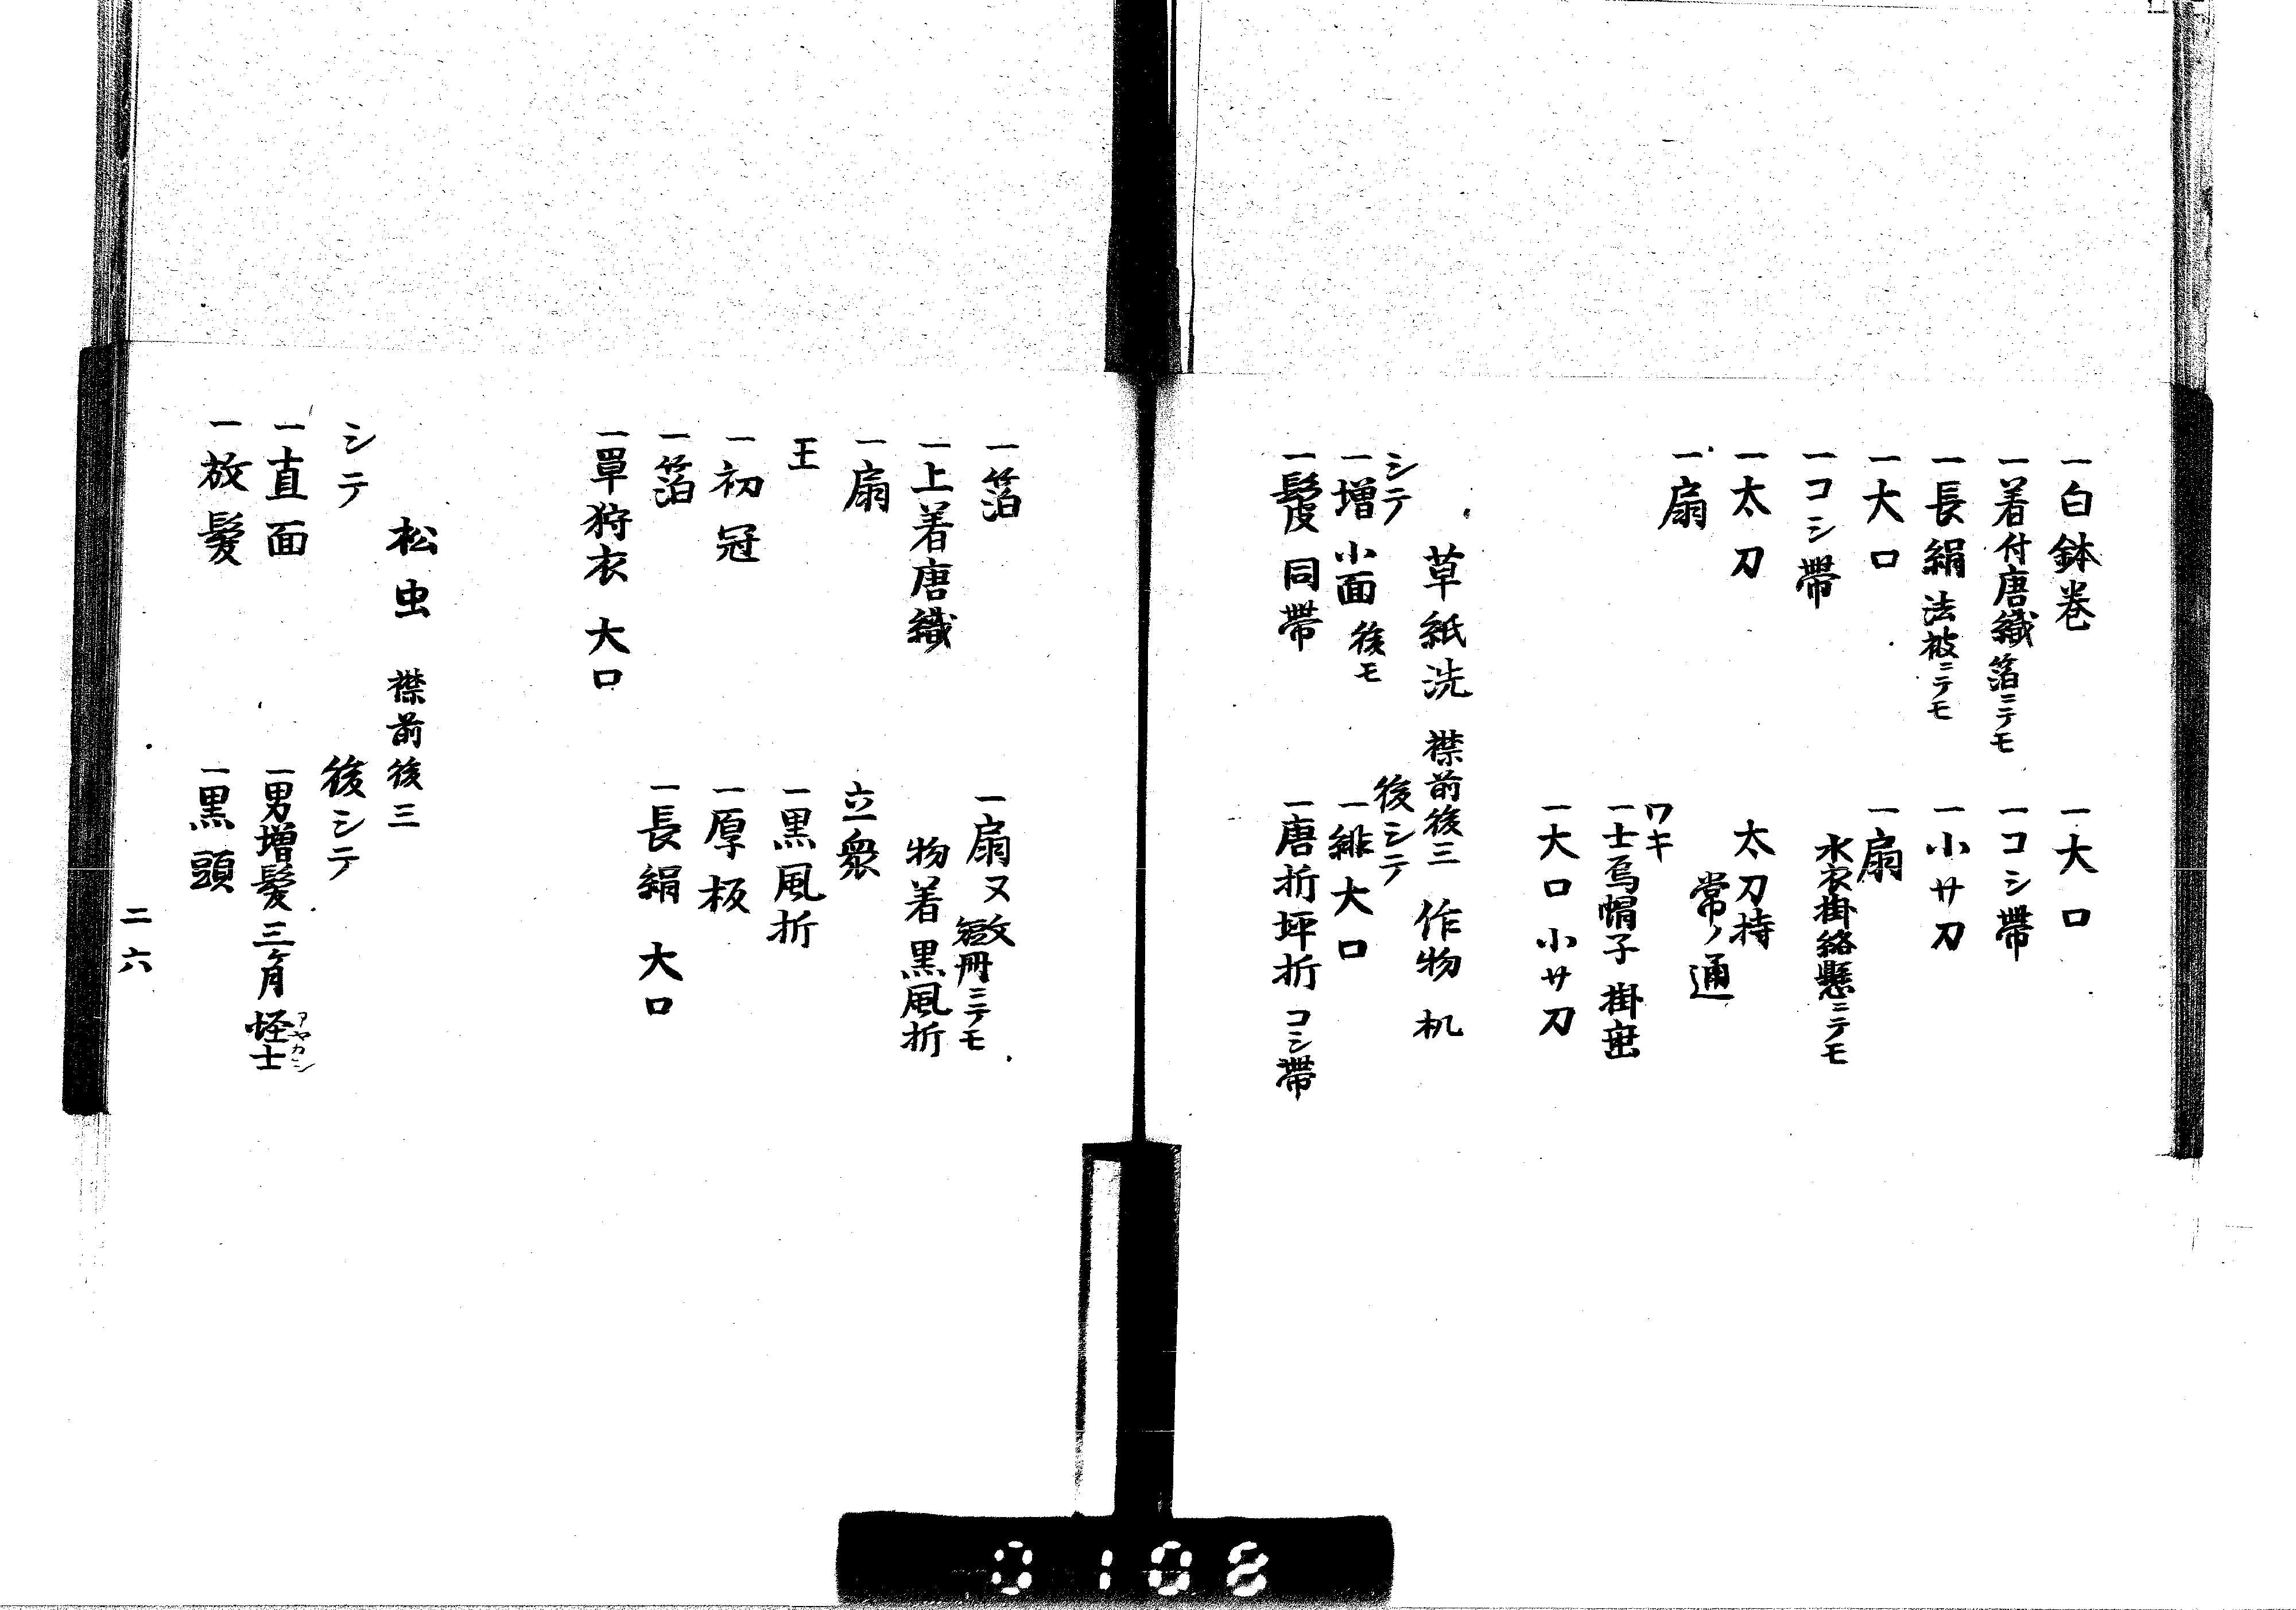 一白鉢巻
一着付唐織 箔ニテモ
一長絹 法被ニテモ
一大口
一コシ帯
一太刀
一扇
一大口
一コシ帯
一小サ刀
一扇
水衣掛絡懸ニテモ
太刀持
常ノ通
ワキ
一士烏帽子 掛直
一大口 小サ刀
草紙洗 襟前後三 作物 机
シテ
一増 小面 後モ
一鬘 同帯
後シテ
一緋大口
一唐折坪折 コシ帯
一箔
一上着唐織
一扇
王
一初冠
一箔
一単狩衣 大口
一扇又 冊ニテモ
物着 黒風折
立衆
一黒風折
一厚板
一長絹 大口
松虫 襟前後三
シテ
一直面
一放髪
後シテ
一男増髪 三ヶ月 怪士 アヤカシ
一黒頭
二六
0108